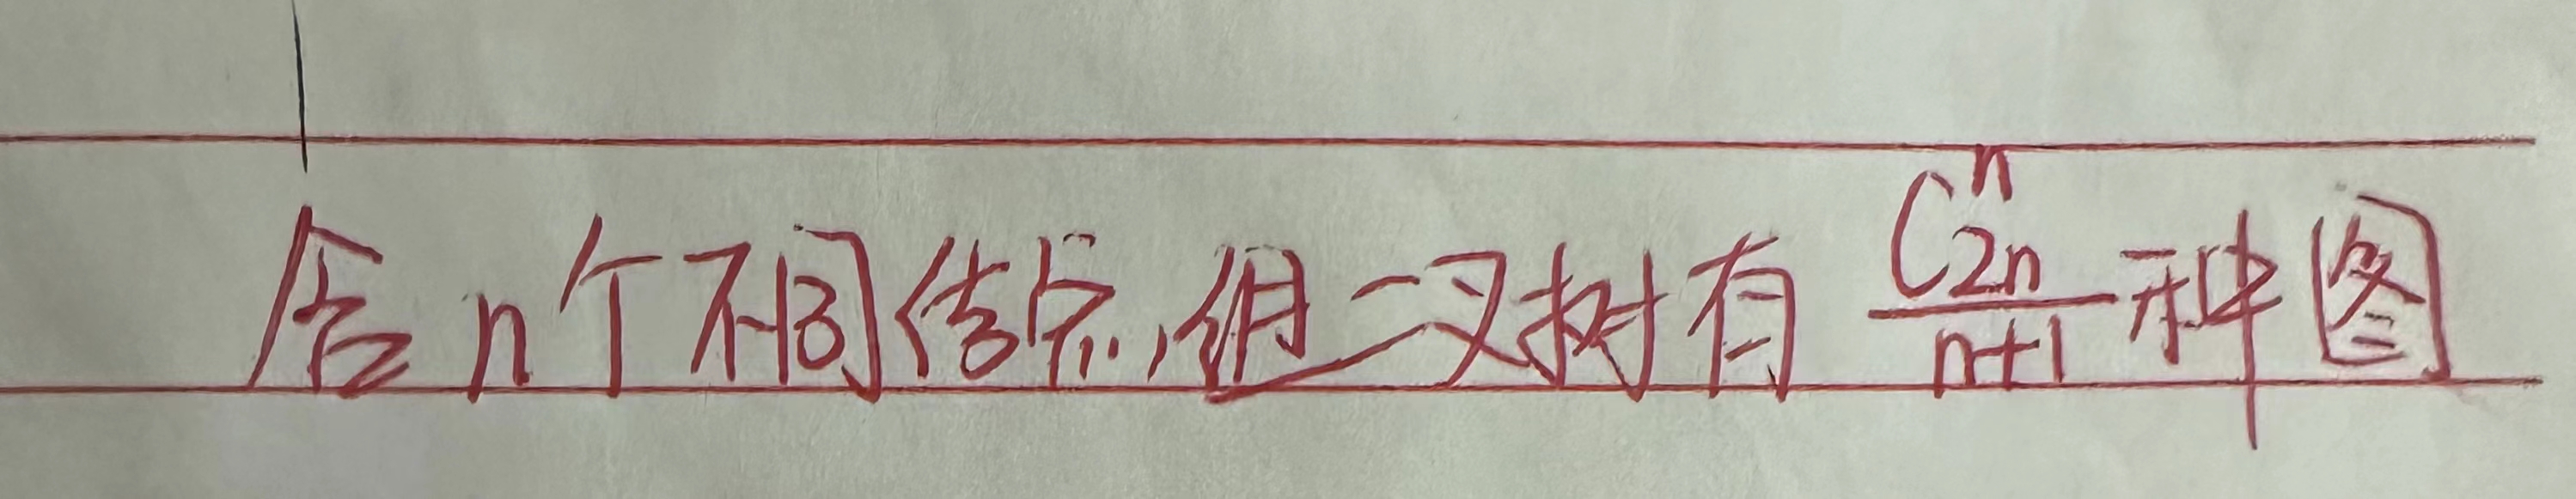 含n个不同结点,组二叉树有 \frac{C_{2n}^{n}}{n+1} 种图